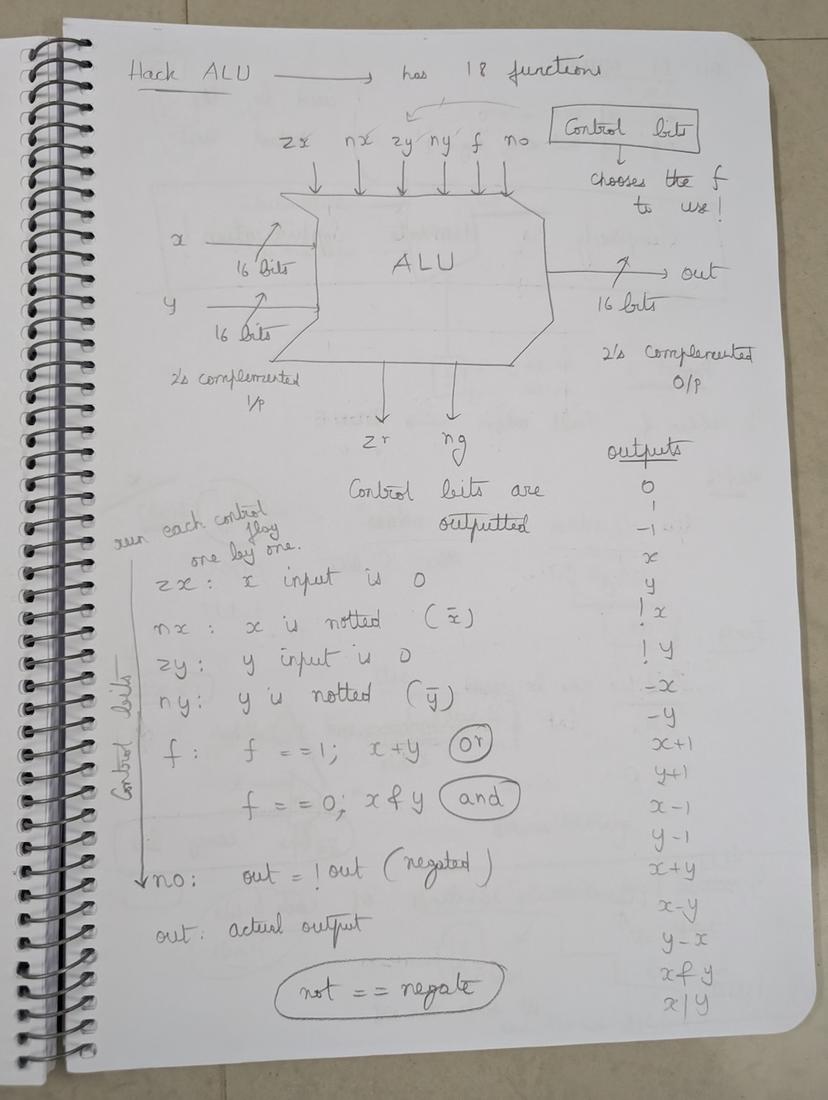 Hack ALU → has 18 functions
zx nx zy ny f no
Control bits
chooses the f
to use!
x
16 bits
ALU
out
16 bits
y
16 bits
2's complemented
I/P
2's complemented
O/P
zr ng
Control bits are
outputted
outputs
0
1
-1
x
y
!x
!y
-x
-y
x+1
y+1
x-1
y-1
x+y
x-y
y-x
x&y
x|y
run each control
flag
one by one.
Control bits
zx: x input is 0
nx: x is notted (x̄)
zy: y input is 0
ny: y is notted (ȳ)
f: f == 1; x+y or
f == 0; x & y and
no: out = !out (negated)
out: actual output
not == negate